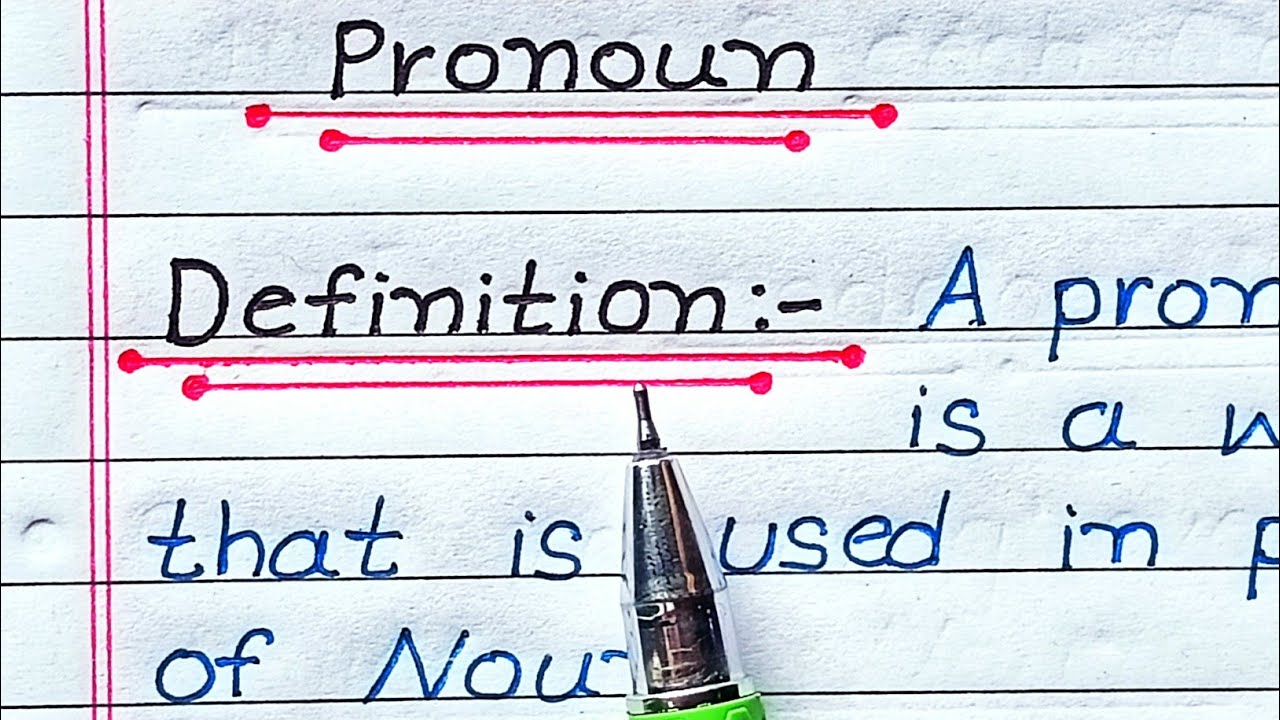 Pronoun
Definition:- A pron
is a w
that is used in p
of Nou